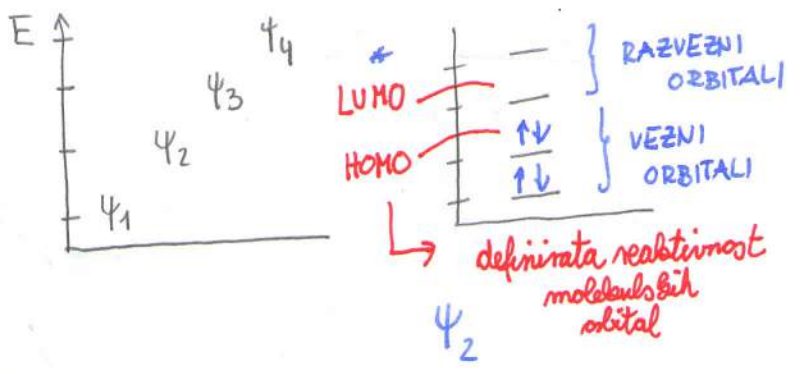 E
ψ4
ψ3
ψ2
ψ1
*
LUMO
HOMO
RAZVEZNI
ORBITALI
VEZNI
ORBITALI
definirata reaktivnost
molekulskih
orbital
ψ2